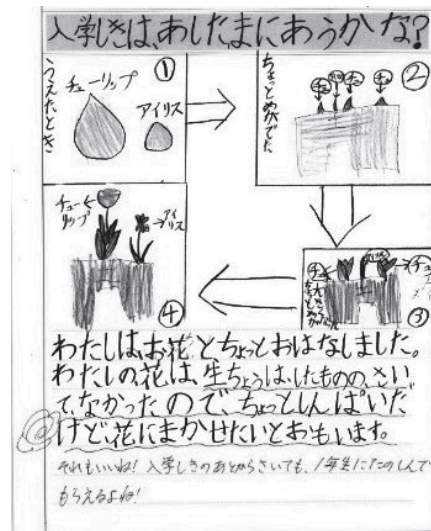 入学しきは、あしたまにあうかな?
①
うえたとき
チューリップ
アイリス
②
ちょっとめがでた
チュ
チュ
チュ
③
チュ
チュ
④
チューリップ
アイリス
わたしは、お花とちょっとおはなしました。
わたしの花は、生ちょうは、したものの、さい
て、なかったので、ちょっとしんぱいだ
けど、花にまかせたいとおもいます。
それもいいね! 入学しきのあとからさいても、1年生にたのしんで
もらえるよね!